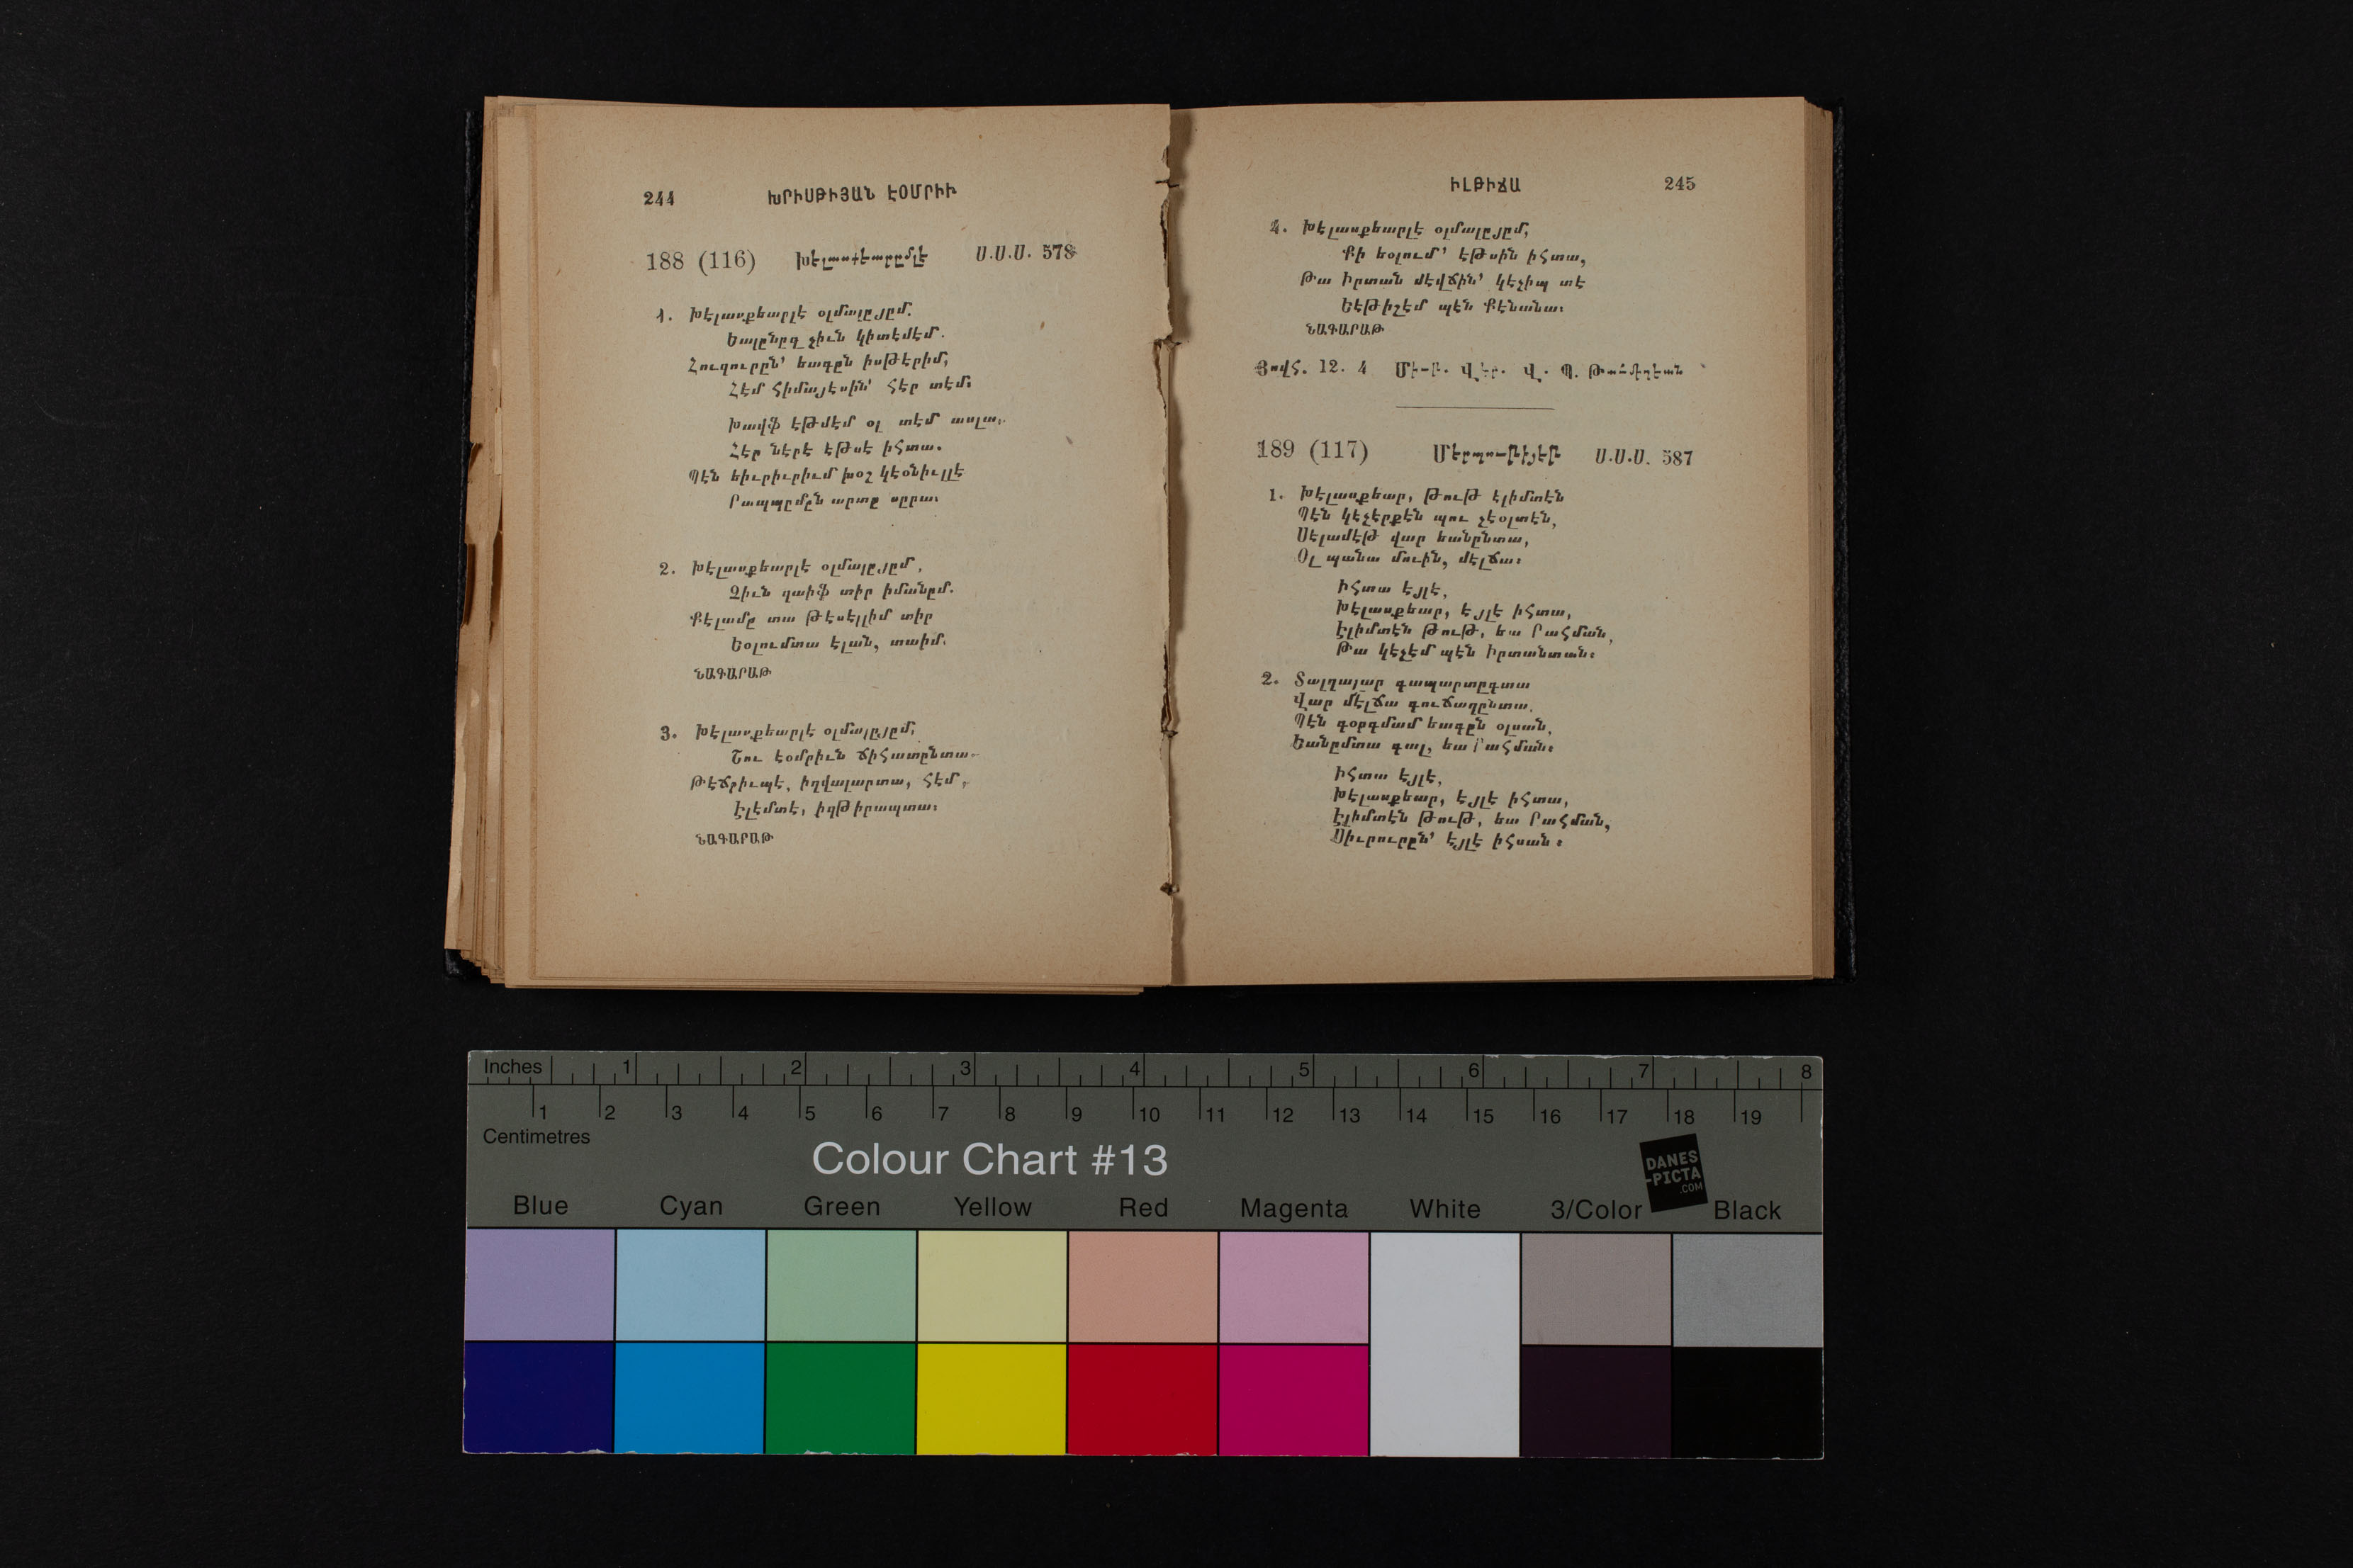 244 ԽՐԻՍԹԻՅԱՆ ԷՕՄՐԻՒ
188 (116) Խէլասքեարըմլէ Ս.Ս.Ս. 578
1. Խէլասքեարլէ օլմալըյըմ.
Եալընըզ չիւն կիտէմէմ.
Հուզուրըն՚ եագըն իսթէրիմ,
Հէմ հիմայէսին՚ հէր տէմ։
Խավֆ էթմէմ օլ տէմ ասլա,
Հէր ներէ էթսէ իհտա.
Պէն եիւրիւրիւմ խօշ կէօնիւլլէ
Րապպըմըն արտը սըրա։
2. Խէլասքեարլէ օլմալըյըմ,
Զիւն զաիֆ տիր իմանըմ.
Քէլամը տա թէսէլլիմ տիր
Եօլումտա էլան, տաիմ.
ՆԱԳԱՐԱԹ
3. Խէլասքեարլէ օլմալըյըմ,
Շու էօմրիւն ճիհատընտա
Թէճրիւպէ, իղվալարտա, հէմ
Էլէմտէ, իղթիրապտա։
ՆԱԳԱՐԱԹ
ԻԼԹԻՃԱ 245
4. Խէլասքեարլէ օլմալըյըմ,
Քի եօլում՚ էթսին իհտա,
Թա Իրտան մէվճին՚ կէչիպ տէ
Եէթիշէմ պէն Քէնանա։
ՆԱԳԱՐԱԹ
Յովհ. 12. 4 Վ. Պ.
189 (117) Ս.Ս.Ս. 587
1. Խէլասքեար, թութ էլիմտէն
Պէն կէչէրքէն պու չէօլտէն,
Սէլամէթ վար եանընտա,
Օլ պանա մուին, մէլճա։
Իհտա էյլէ,
Խէլասքեար, էյլէ իհտա,
Էլիմտէն թութ, եա Րահման,
Թա կէչէմ պէն Իրտանտան։
2. Տալղալար գապարտըգտա
Վար մէլճա գուճաղընտա.
Պէն գօրգմամ եագըն օլսան,
Եանըմտա գալ, եա Րահման։
Իհտա էյլէ,
Խէլասքեար, էյլէ իհտա,
Էլիմտէն թութ, եա Րահման,
Սիւրուրըն՚ էյլէ իհսան։
Inches 1 2 3 4 5 6 7 8
1 2 3 4 5 6 7 8 9 10 11 12 13 14 15 16 17 18 19
Centimetres
Colour Chart #13
DANES
-PICTA
.COM
Blue Cyan Green Yellow Red Magenta White 3/Color Black